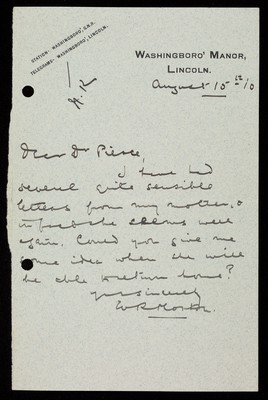 STATION - WASHINGBORO', G.N.R.
TELEGRAMS - WASHINGBORO', LINCOLN.
WASHINGBORO' MANOR,
LINCOLN.
August 15th/10
Dear Dr Pierce,
I have had
several quite sensible
letters from my mother, &
in fact she seems well
again. Could you give me
some idea when she will
be able to return home?
yrs sincerely